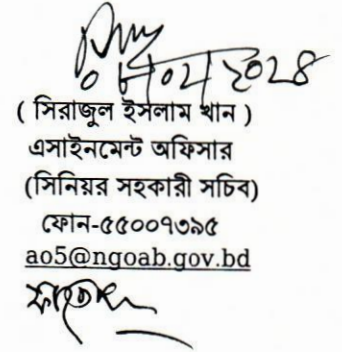 ( সিরাজুল ইসলাম খান )
এসাইনমেন্ট অফিসার
(সিনিয়র সহকারী সচিব)
ফোন-৫৫০০৭৩৯৫
ao5@ngoab.gov.bd